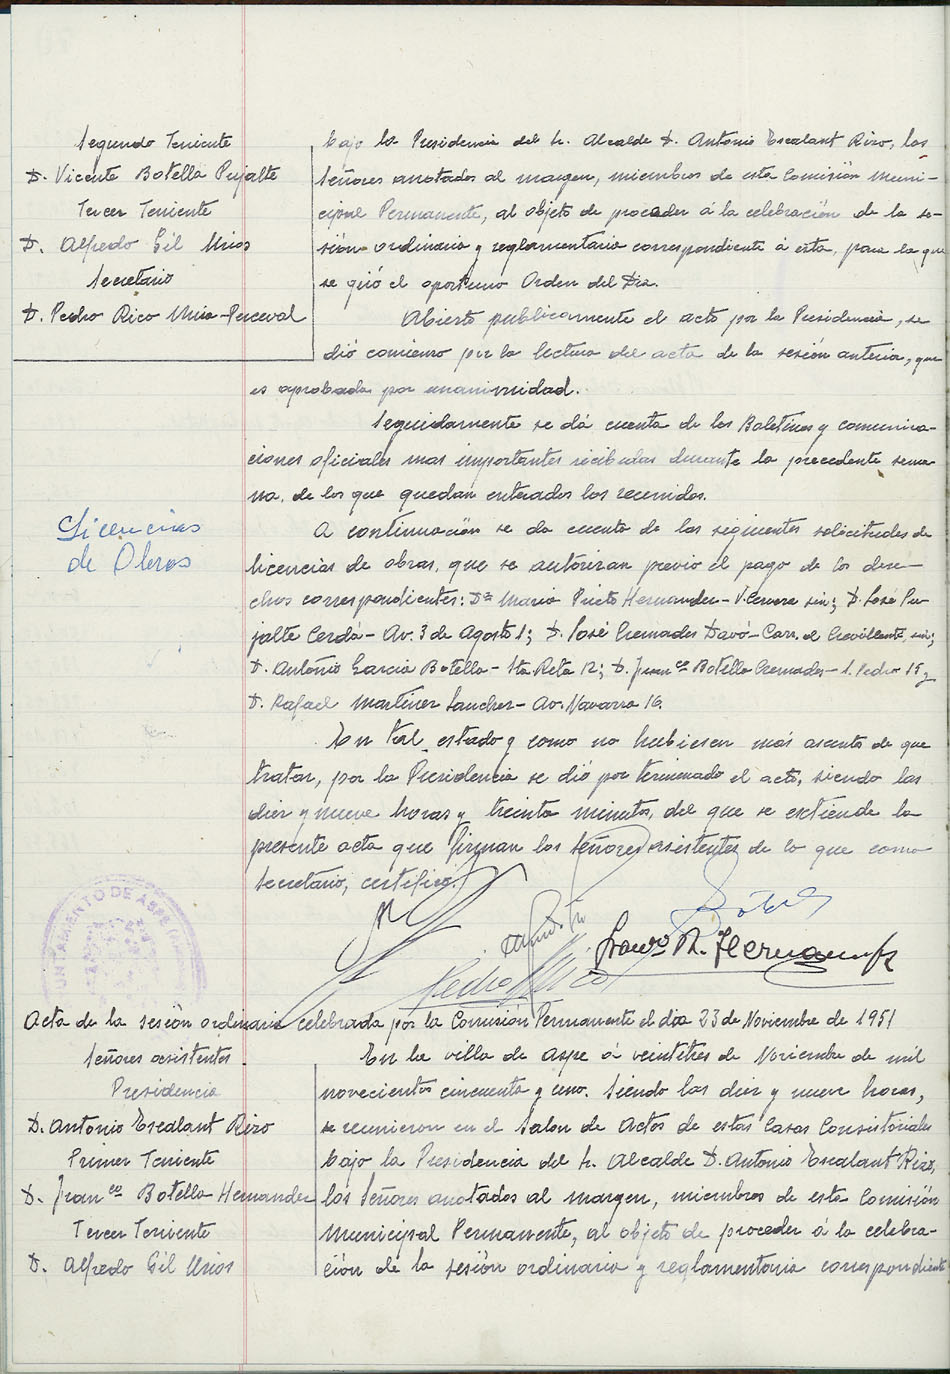 Segundo Teniente
D. Vicente Botella Pujalte
Tercer Teniente
D. Alfredo Gil Mños
Secretario
D. Pedro Rico Mira-Perceval
bajo la Presidencia del Sr. Alcalde D. Antonio Escalant Rizo, los
Señores anotados al margen, miembros de esta Comisión Muni-
cipal Permanente, al objeto de proceder á la celebración de la se-
sión ordinaria y reglamentaria correspondiente á esta, para la que
se giró el oportuno Orden del Dia.
Abierto publicamente el acto por la Presidencia, se
dió comienzo por la lectura del acta de la sesión anterior, que
es aprobada por unanimidad.
Seguidamente se dá cuenta de los Boletines y comunica-
ciones oficiales mas importantes recibidas durante la precedente sema-
na, de los que quedan enterados los reunidos.
Licencias
de Obras
A continuación se da cuenta de las siguientes solicitudes de
licencias de obras, que se autorizan previo el pago de los dere-
chos correspondientes: Dª Maria Prieto Hernandez - V. Cervera s/n; D. José Pu-
jalte Cerdá - Av. 3 de Agosto 1; D. José Cremades Davó - Carr. de Crevillente, s/n;
D. Antonio Garcia Botella - Sta Rita 12; D. Franco Botella Cremades - S. Pedro 15 y
D. Rafael Martinez Sanchez - Av. Navarra 16.
En tal estado y como no hubiesen más asunto de que
tratar, por la Presidencia se dió por terminado el acto, siendo las
diez y nueve horas y treinta minutos, del que se extiende la
presente acta que firman los Señores asistentes de lo que como
Secretario, certifico.
AYUNTAMIENTO DE ASPE
Franco B. Hernandez
Pedro Rico
Acta de la sesión ordinaria celebrada por la Comisión Permanente el dia 23 de Noviembre de 1951
Señores asistentes
Presidencia
D. Antonio Escalant Rizo
Primer Teniente
D. Franco Botella Hernandez
Tercer Teniente
D. Alfredo Gil Mños
En la villa de Aspe á veintitres de Noviembre de mil
novecientos cincuenta y uno. Siendo las diez y nueve horas,
se reunieron en el Salon de Actos de estas Casas Consistoriales
bajo la Presidencia del Sr. Alcalde D. Antonio Escalant Rizo,
los Señores anotados al margen, miembros de esta Comisión
Municipal Permanente, al objeto de proceder á la celebra-
ción de la sesión ordinaria y reglamentaria correspondiente